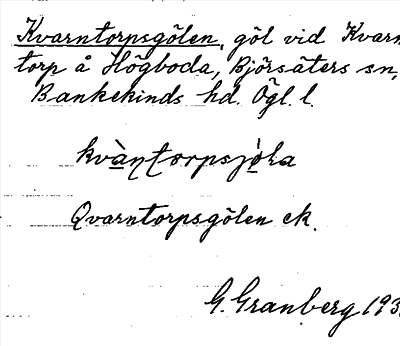 Kvarntorpsgölen, göl vid Kvarn
torp å Högboda, Björsäters sn,
Bankekinds hd. Ögl. l.
Qvarntorpsgölen ek.
G. Granberg 193